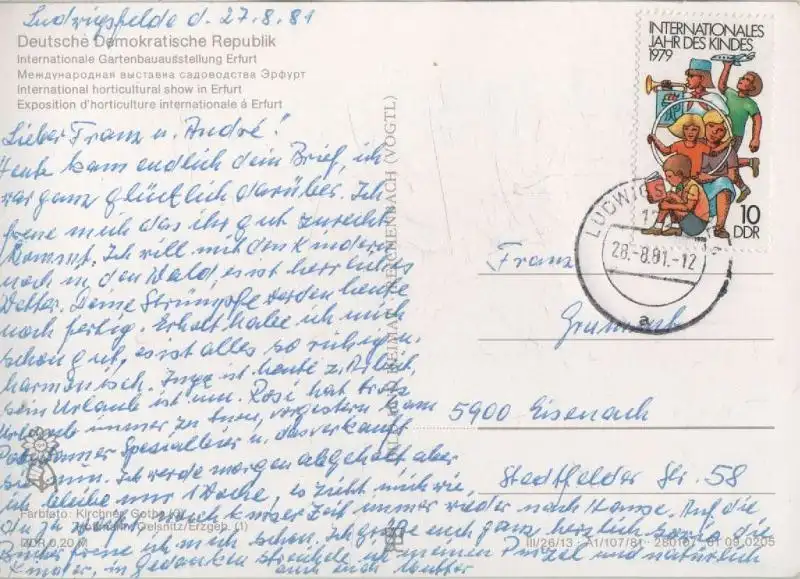 Ludwigsfelde d. 27.8.81
Deutsche Demokratische Republik
Internationale Gartenbauausstellung Erfurt
Международная выставка садоводства Эрфурт
International horticultural show in Erfurt
Exposition d'horticulture internationale á Erfurt
Lieber Franz u. André!
Heute kam endlich dein Brief, ich
war ganz glücklich darüber. Ich
freue mich das ihr gut zurecht
kommt. Ich will mit den Kindern
noch in den Wald, es ist herrliches
Wetter. Deine Strümpfe werden heute
noch fertig. Erholt habe ich mich
schon gut, es ist alles so ruhig u.
harmonisch. Inge ist heute z. Arbeit,
sein Urlaub ist um. Rosi hat trotz
Urlaub immer zu tun, vorgestern kam
Spezialbier u. das verkauft
sie nun. Ich werde morgen abgeholt aber
ich bleibe nur 1 Woche, es zieht mich wie
Du ja nach kurzer Zeit immer wieder nach Hause. Auf die
Bücher freue ich mich schon. Ich grüße euch ganz herzlich sowie die
Kinder, in Gedanken streichele ich meinen Putzel und natürlich
auch euch Mutter
Farbfoto: Kirchner, Gotha
Oelsnitz/Erzgeb. (1)
DDR 0,20 M
REICHENBACH (VOGTL)
INTERNATIONALES
JAHR DES KINDES
1979
10
DDR
28.-8.81.-12
a
Franz
5900 Eisenach
Stedtfelder Str. 58
III/26/13 · A1/107/81 · 01 09 0205